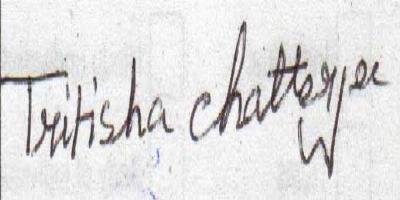 Tritisha Chatterjee